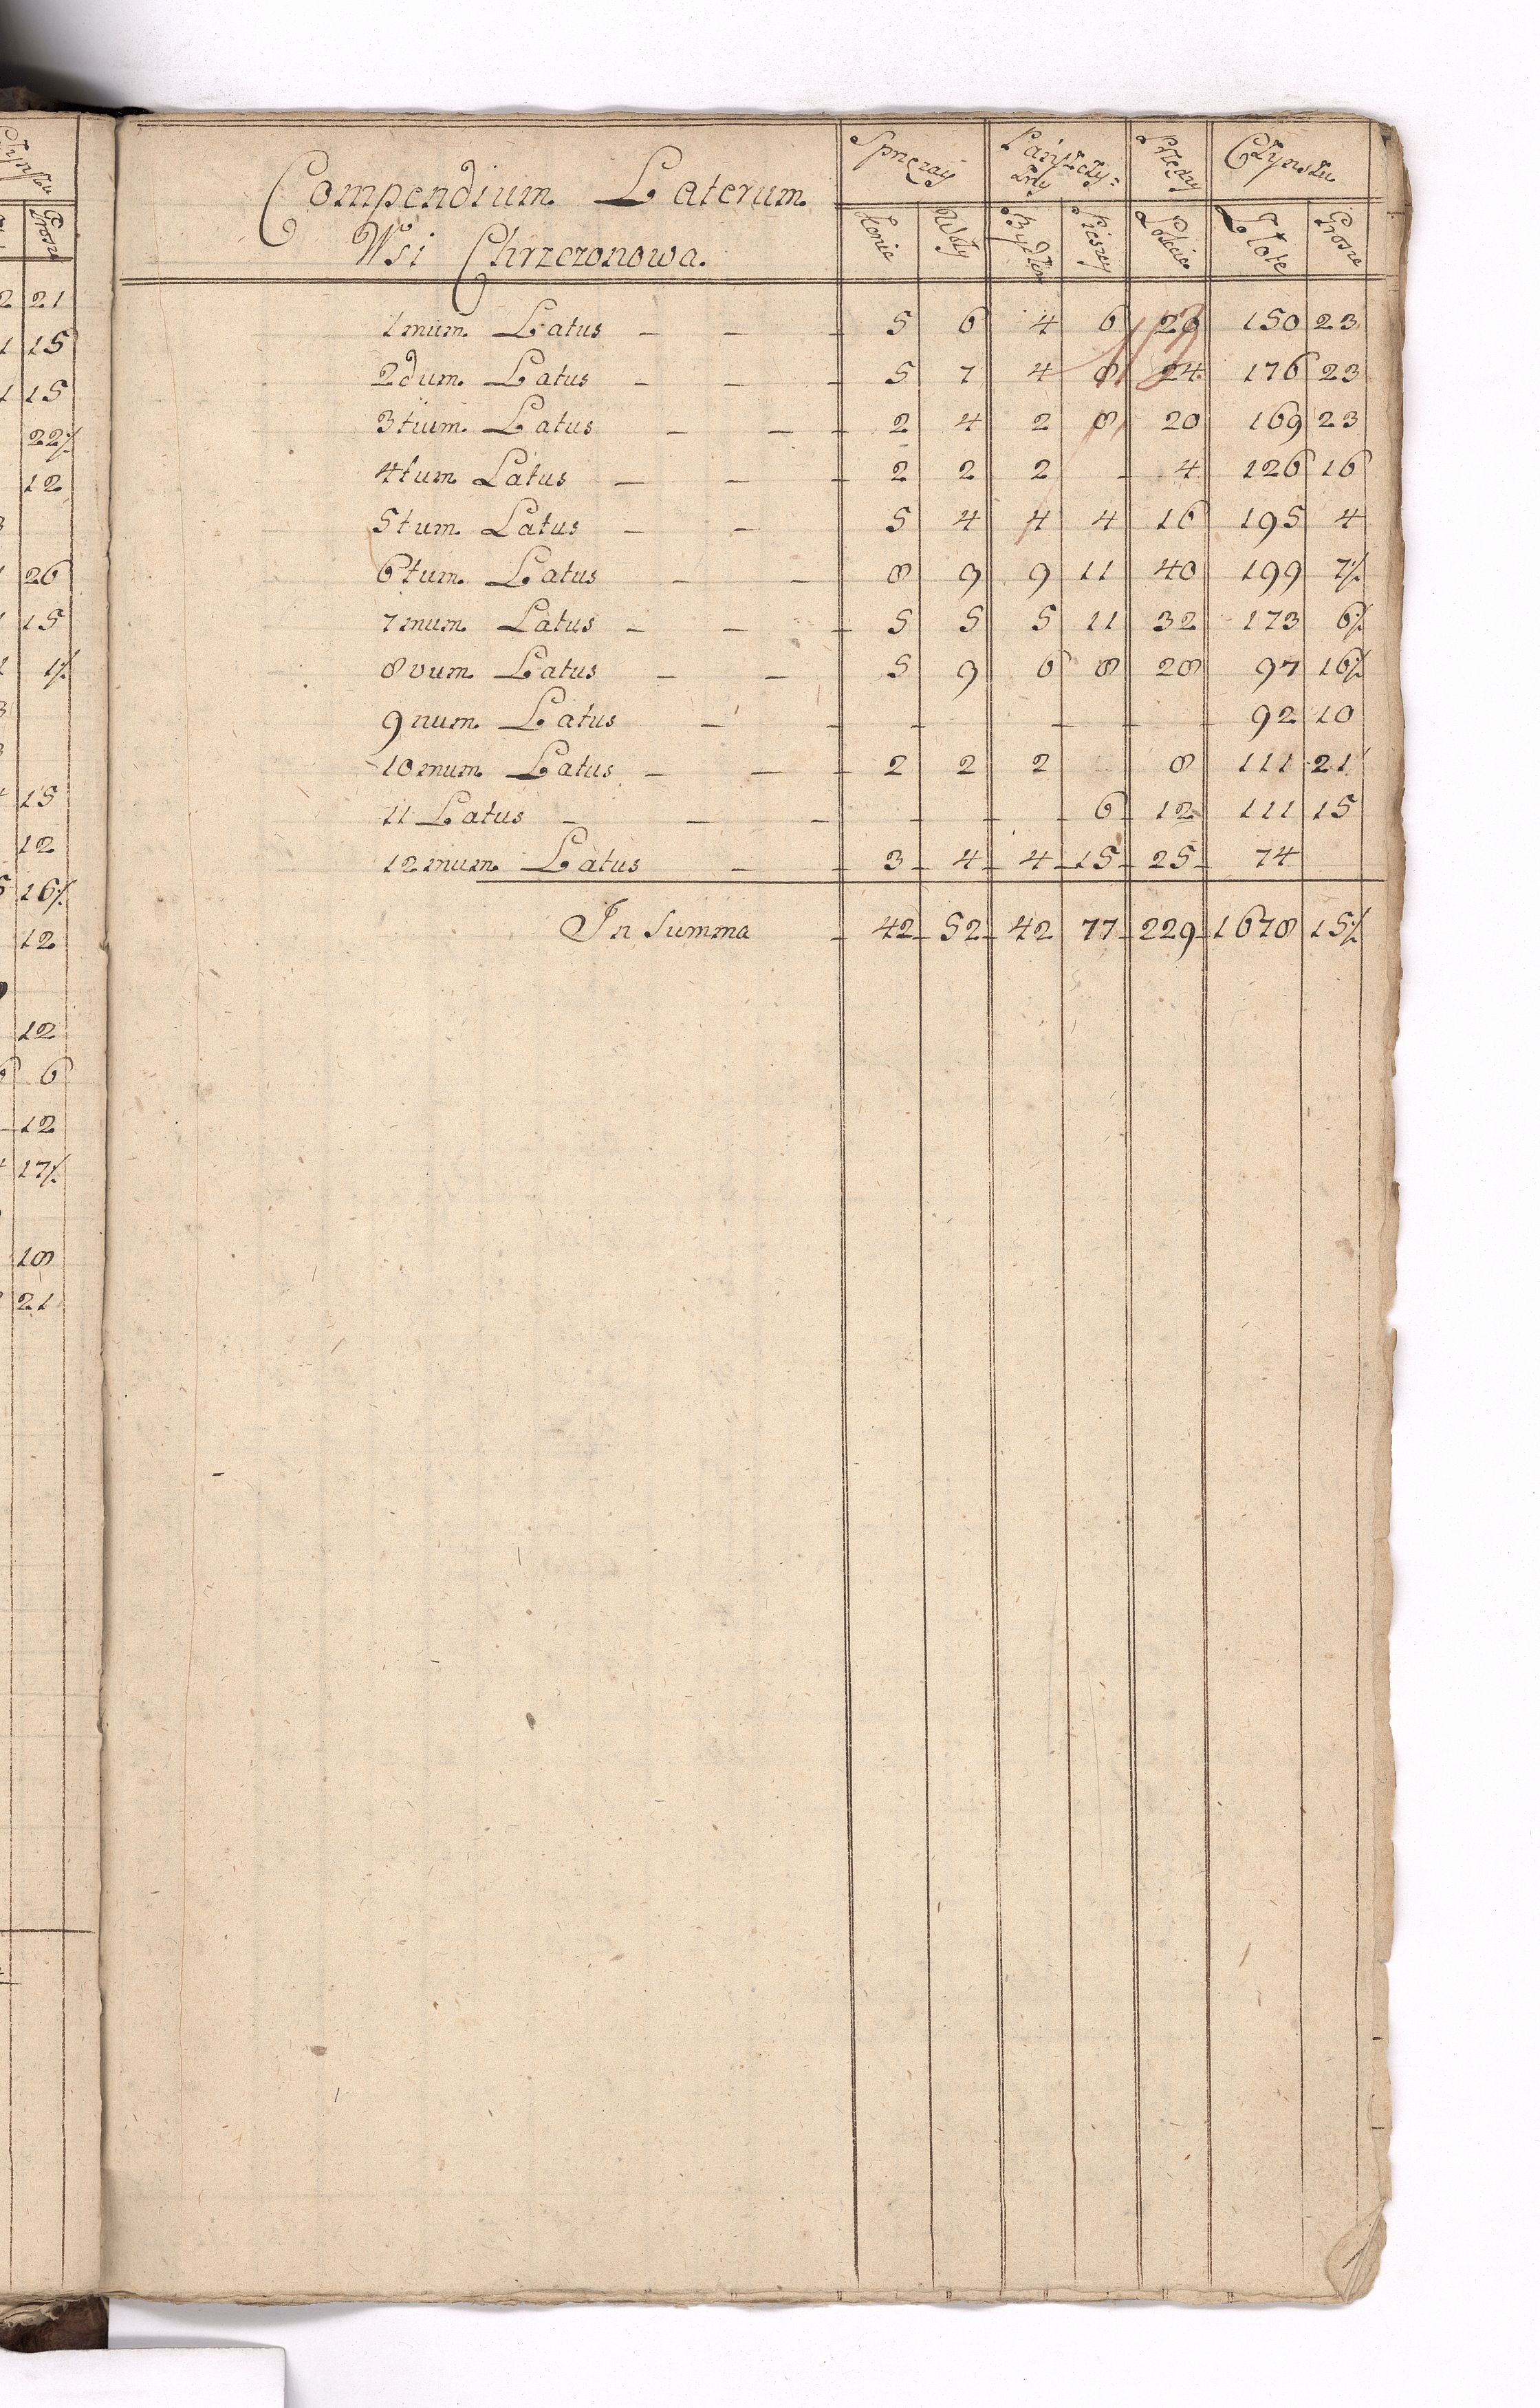 Compendium Laterum
Wsi Chrzczonowa.
Sprzężáy Pańszczy= zny Przędzy Czynszu
Konie Woły Bydłem Pieszey Łokcie Złote Grosze
1mum Latus — — 5 6 4 6 20 150 23
2dum Latus — — 5 7 4 8 24 176 23
3tium Latus — — 2 4 2 8 20 169 23
4tum Latus — — 2 2 2 - 4 126 16
5tum Latus — — 5 4 4 4 16 195 4
6tum Latus — — 8 9 9 11 40 199 7½
7mum Latus — — 5 5 5 11 32 173 6½
8vum Latus — — 5 9 6 8 28 97 16½
9num Latus — — 92 10
10mum Latus — — 2 2 2 8 111 21
11 Latus — — — 6 12 111 15
12mum Latus — 3 4 4 15 25 74
In Summa 42 52 42 77 229 1678 15½
Czynszu
Grosze
2 21
1 15
1 15
22½
12
26
15
1½
15
12
16½
12
12
6 6
12
17½
18
21